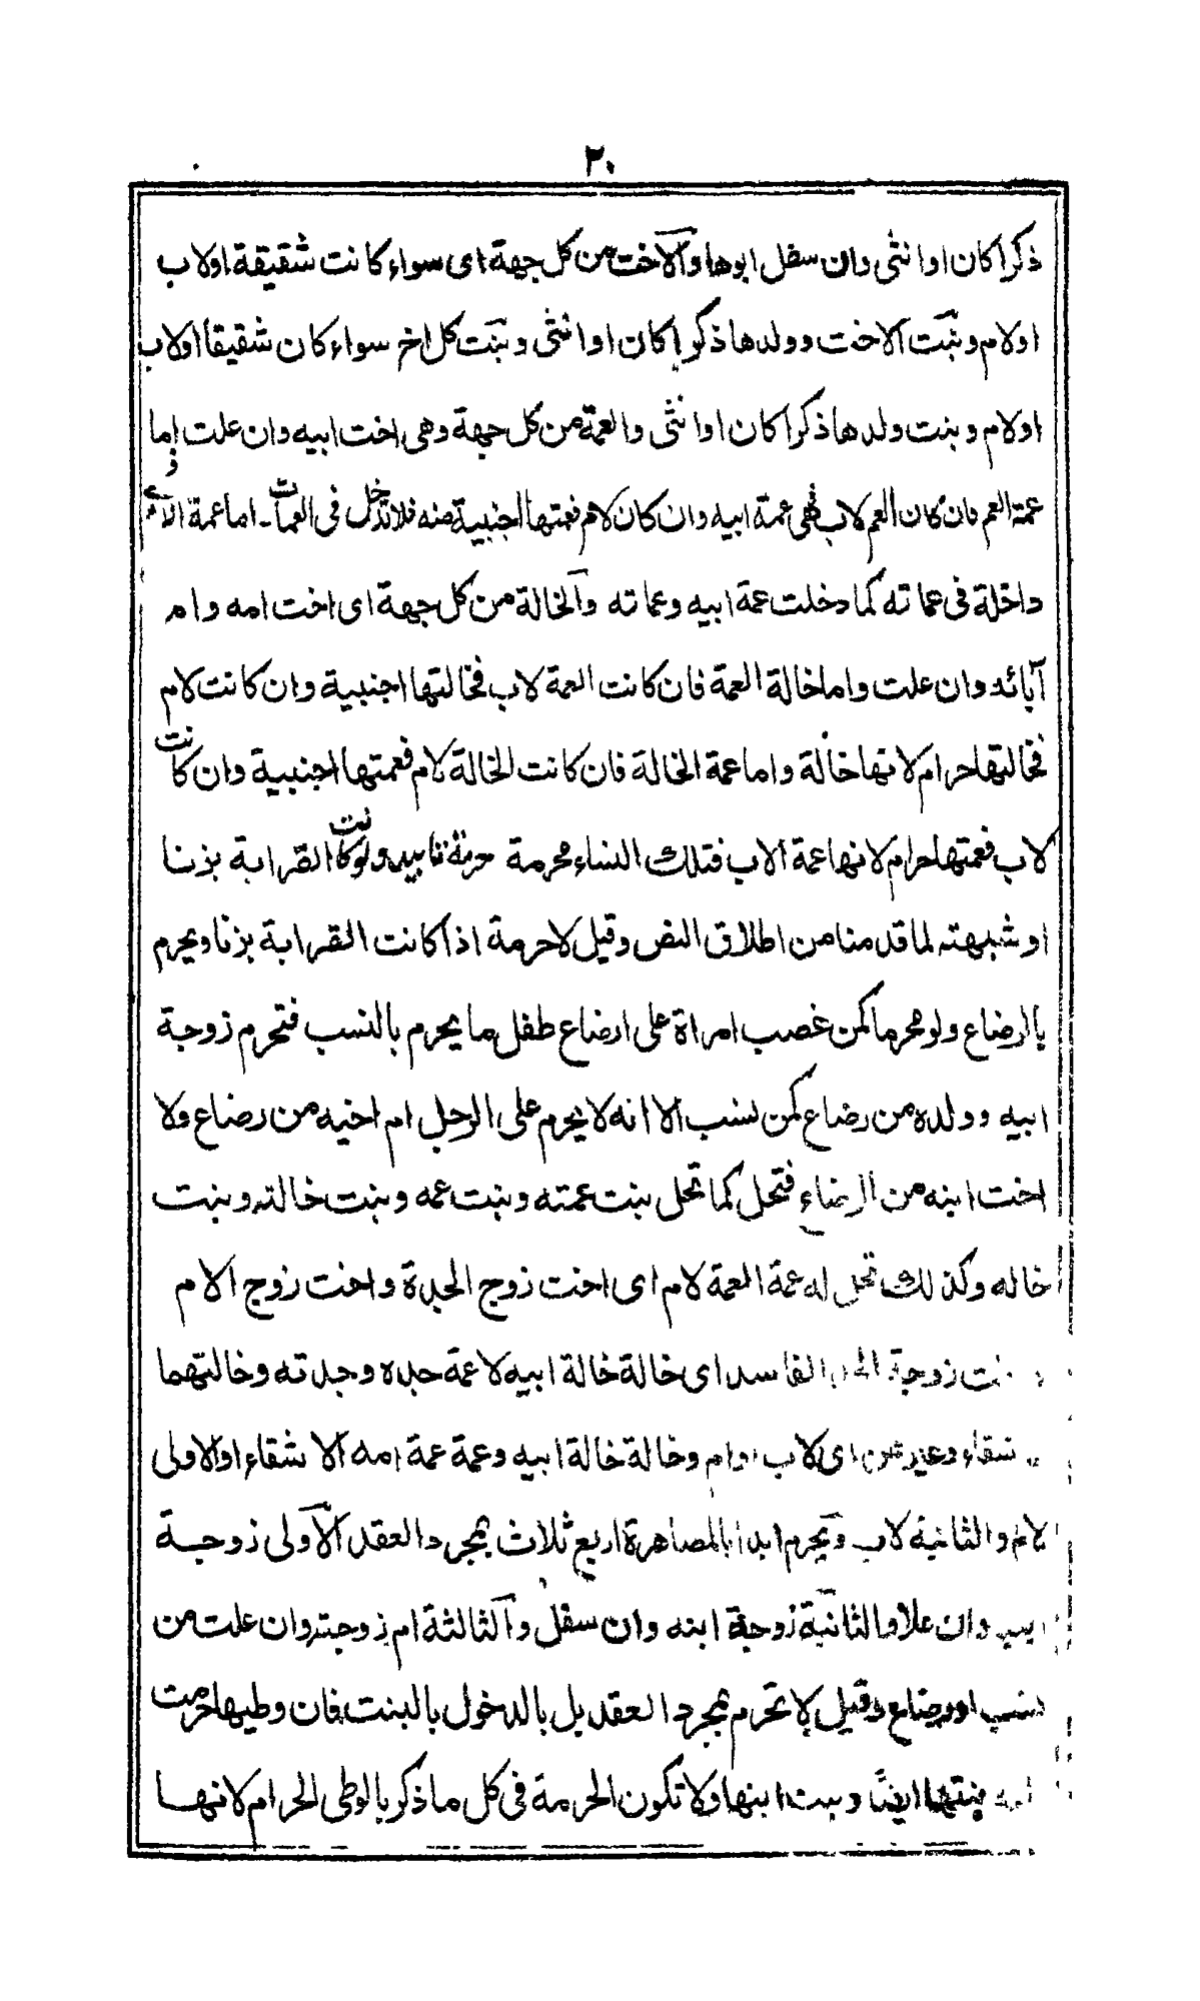 ٢٠
ذكرا كان او انثى وان سفل ابوها والاخت من كل جهة اى سواء كانت شقيقة اولاب
اولام وبنت الاخت وولدها ذكرا كان او انثى وبنت كل اخ سواء كان شقيقا اولاب
اولام وبنت ولدها ذكرا كان او انثى والعمة من كل جهة وهى اخت ابيه وان علت واما
عمة العم فان كان العم لاب فهى عمة ابيه وان كان لام فعمتها اجنبية منه فلا تدخل فى العمات ـ اما عمة الام
داخلة فى عماته كما دخلت عمة ابيه وعماته والخالة من كل جهة اى اخت امه وام
آبائه وان علت واما خالة العمة فان كانت العمة لاب فخالتها اجنبية وان كانت لام
فخالتها حرام لانها خالة واما عمة الخالة فان كانت الخالة لام فعمتها اجنبية وان كانت
لاب فعمتها حرام لانها عمة الاب فتلك النساء محرمة حرمة تابيد ولو كانت القرابة بزنا
او شبهته لما قدمنا من اطلاق النص وقيل لاحرمة اذا كانت القرابة بزنا ويحرم
بالرضاع ولو محرما كمن غصب امراة على ارضاع طفل ما يحرم بالنسب فتحرم زوجة
ابيه وولده من رضاع كمن نسب الا انه لا يحرم على الرجل ام اخيه من رضاع ولا
اخت ابنه من الرضاع فتحل كما تحل بنت عمته وبنت عمه وبنت خالته وبنت
خاله وكذلك تحل له عمة العمة لام اى اخت زوج الجدة واخت زوج الام
زوجة الجد الفاسد اى خالة خالة ابيه لا عمة جده وجدته وخالتهما
شقاء وغيرهن اى لاب اوام وخالة خالة ابيه وعمة عمة امه الا شقاء او الاولى
لام والثانية لاب ويحرم ابدا بالمصاهرة اربع ثلاث بمجرد العقد الاولى زوجة
ابيه وان علا والثانية زوجة ابنه وان سفل والثالثة ام زوجته وان علت من
نسب او رضاع وقيل لا تحرم بمجرد العقد بل بالدخول بالبنت فان وطيها حرمت
بنتها ايضا وبنت ابنها ولا تكون الحرمة فى كل ما ذكر بالوطى الحرام لانها